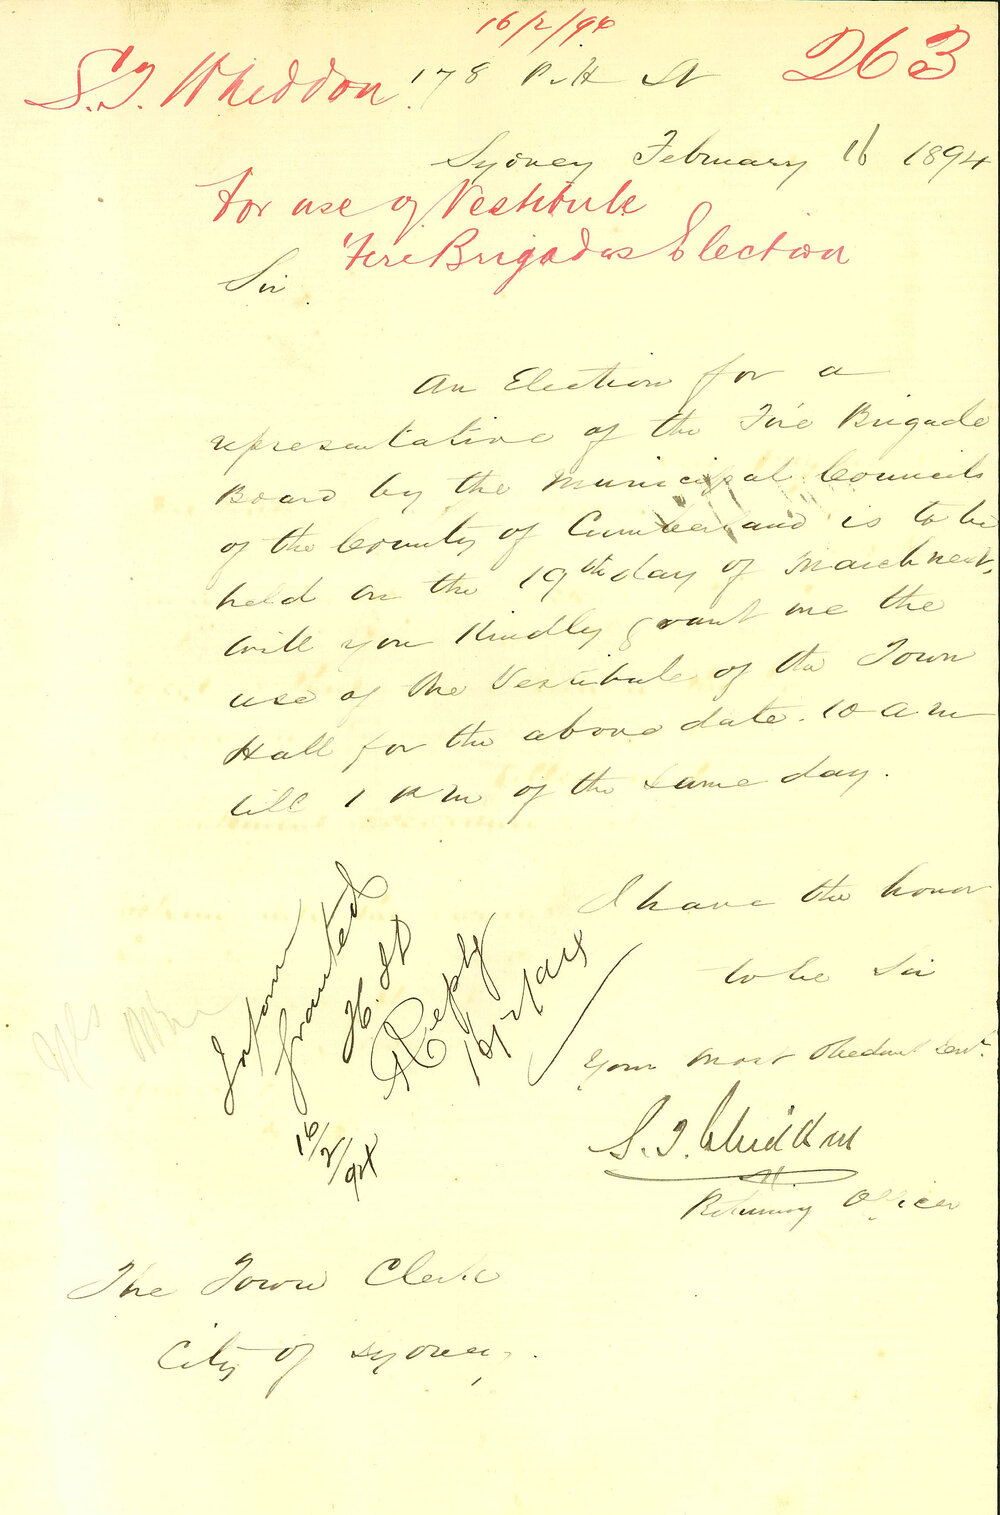 16/2/94
263
S.T. Whiddon 178 Pitt St
Sydney February 16 1894
For use of Vestibule
Fire Brigades Election
Sir
An Election for a
representative of the Fire Brigade
Board by the Municipal Councils
of the County of Cumberland is to be
held on the 19th day of March next,
will you kindly grant me the
use of the Vestibule of the Town
Hall for the above date. 10 am
till 1 pm of the same day.
I have the honor
to be Sir
Your most Obedient Servt.
S. T. Whiddon
Returning Officer
Inform
granted
16/2/94
Reply
16/2/94
Yes
The Town Clerk
City of Sydney.